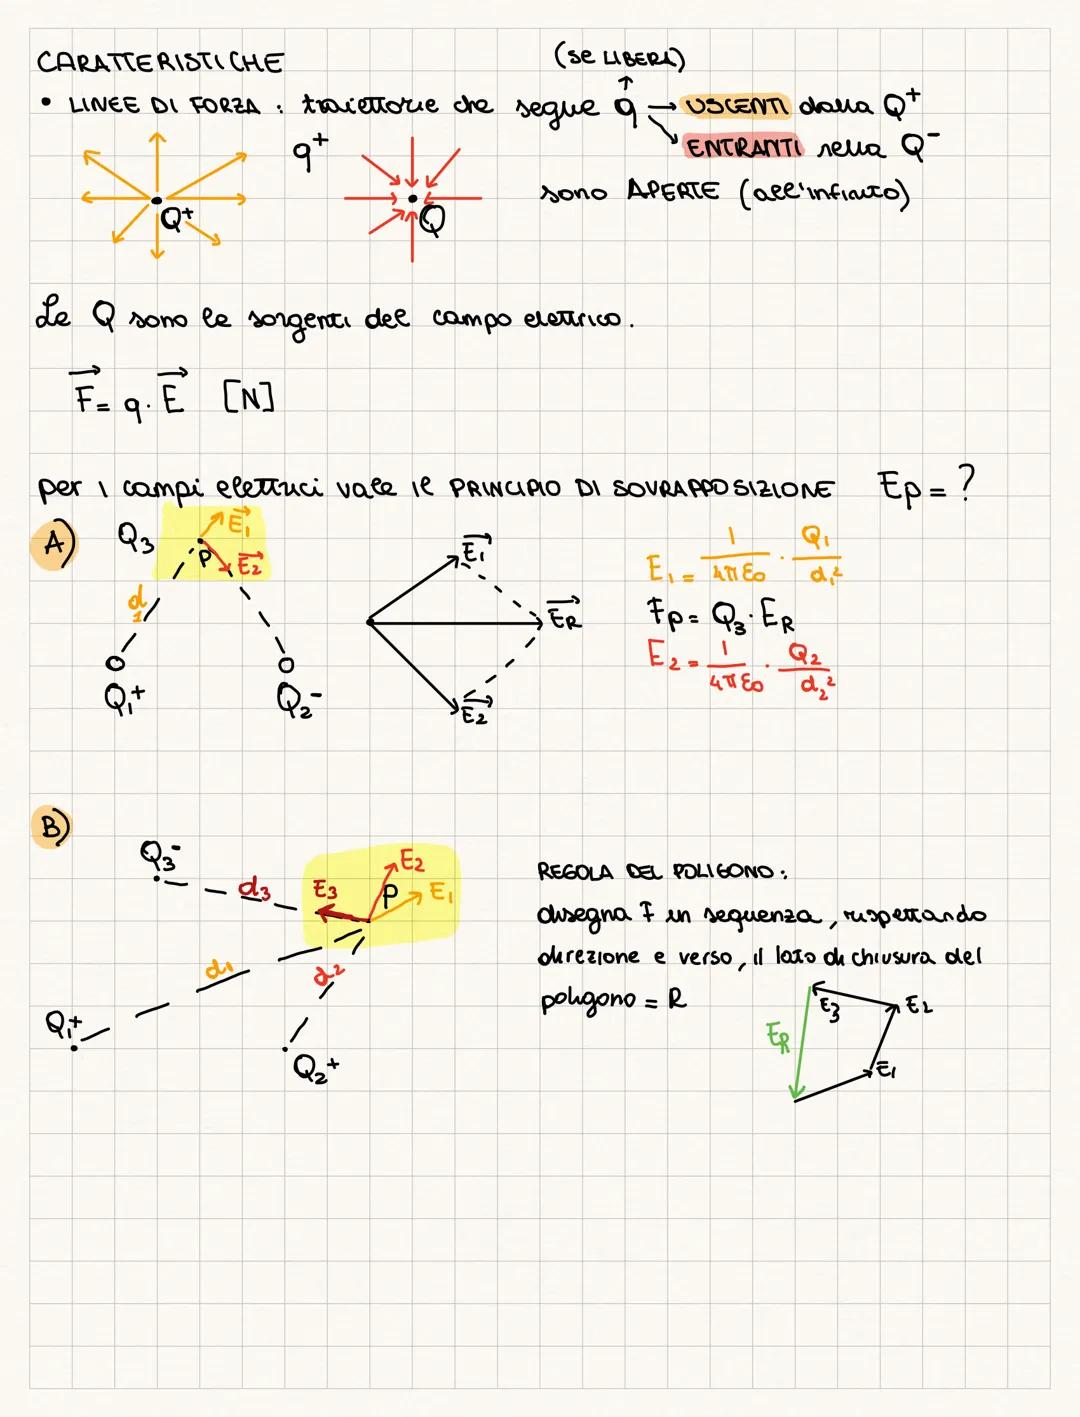 CARATTERISTICHE
(se LIBERA)
• LINEE DI FORZA : traiettorie che segue q → USCENTI dalla Q⁺
→ ENTRANTI nella Q⁻
q⁺
sono APERTE (all'infinito)
Q⁺
Q
Le Q sono le sorgenti del campo elettrico.
F⃗ = q · E⃗ [N]
per i campi elettrici vale il PRINCIPIO DI SOVRAPPOSIZIONE Ep = ?
A)
Q₃ P E⃗₁ E⃗₂
d₁
Q₁⁺ Q₂⁻
E⃗₁
E⃗R
E⃗₂
E₁ = 1/4πε₀ · Q₁/d₁²
Fp = Q₃ · ER
E₂ = 1/4πε₀ · Q₂/d₂²
B)
Q₃⁻
d₃ E₃ P E₂ E₁
d₁ d₂
Q₁⁺
Q₂⁺
REGOLA DEL POLIGONO :
disegna F in sequenza, rispettando
direzione e verso, il lato di chiusura del
poligono = R
E₃ E₂
ER
E₁